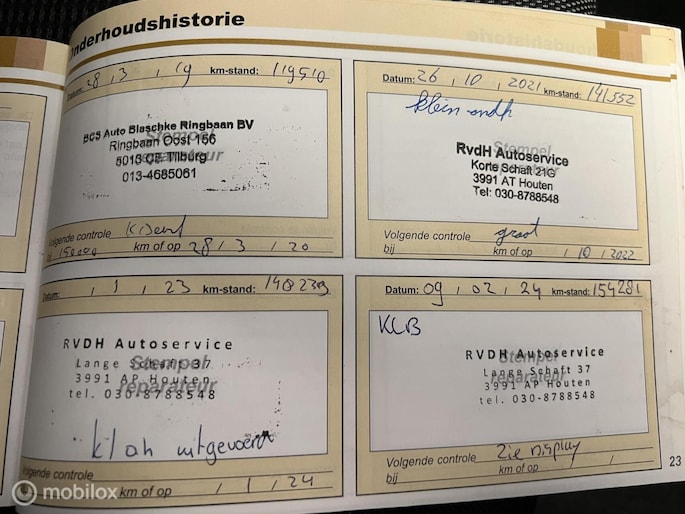 Onderhoudshistorie
Datum: 28 , 3 , 19 km-stand: 119510
BCS Auto Blaschke Ringbaan BV
Ringbaan Oost 156
5013 CE Tilburg
013-4685061
Stempel
reparateur
Volgende controle
bij 150000 km of op 28 / 3 / 20
Datum: 26 , 10 , 2021 km-stand: 141552
klein ondh
RvdH Autoservice
Korte Schaft 21G
3991 AT Houten
Tel: 030-8788548
Volgende controle groot
bij km of op / 10 / 2022
, 1 , 23 km-stand: 148239
RVDH Autoservice
Lange Schaft 37
3991 AP Houten
tel. 030-8788548
Stempel
reparateur
uitgevoerd
Volgende controle
km of op / 1 / 24
Datum: 09 , 02 , 24 km-stand: 154281
KLB
RVDH Autoservice
Lange Schaft 37
3991 AP Houten
tel. 030-8788548
Stempel
reparateur
Volgende controle Zie Display
bij km of op / /
23
mobilox